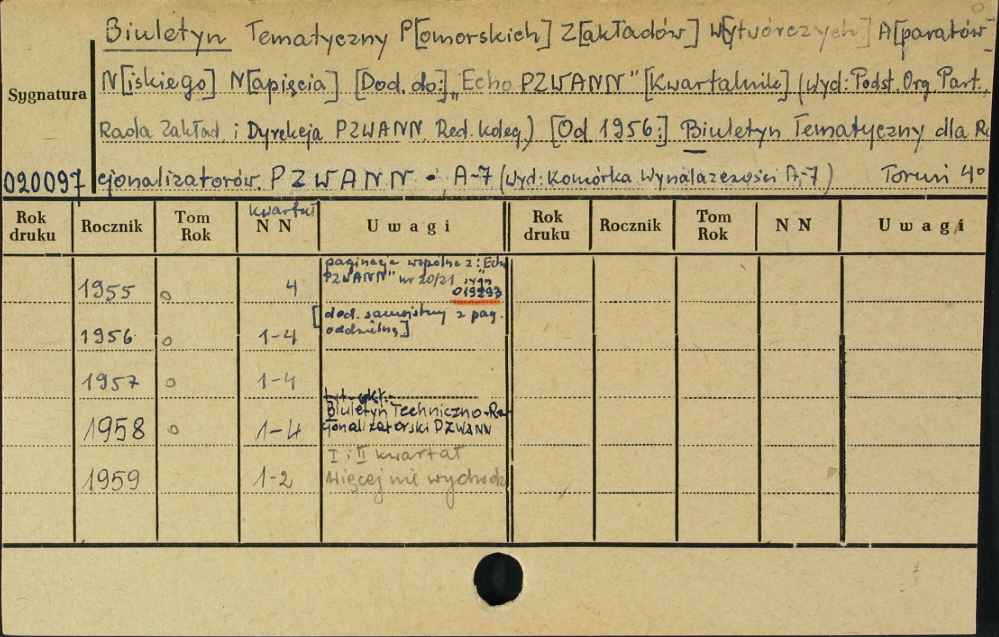 Biuletyn Tematyczny P[omorskich] Z[akładów] W[ytwórczych] A[paratów]
N[iskiego] N[apięcia] [Dod. do:] „Echo PZWANN" [Kwartalnik] (Wyd: Podst. Org. Part.,
Sygnatura
Rada Zakład. i Dyrekcja PZWANN, Red. koleg.) [Od 1956:] Biuletyn Tematyczny dla Ra
020097 cjonalizatorów. PZWANN • A-7 (Wyd: Komórka Wynalazczości A-7) Toruń 4°
Rok druku Rocznik Tom Rok kwartał NN Uwagi Rok druku Rocznik Tom Rok NN Uwagi
paginacja wspólna z: „Echo
PZWANN" nr 20/21 sygn
1955 o 4 019293
[dod. samoistny z pag.
oddzielną]
1956 o 1-4
1957 o 1-4
tyt. okł.:
Biuletyn Techniczno-Ra-
cjonalizatorski PZWANN
1958 o 1-4
I i II kwartał
1959 1-2 Więcej nie wychodzi